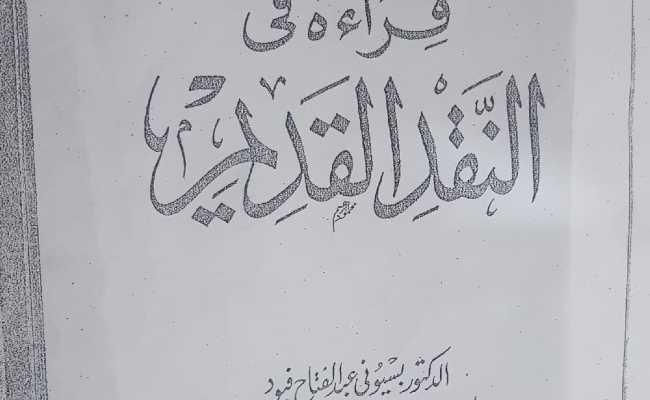 قِرَاءَة فى
النَّقْدِ القَدِيمِ
الدكتور بسيونى عبد الفتاح فيود